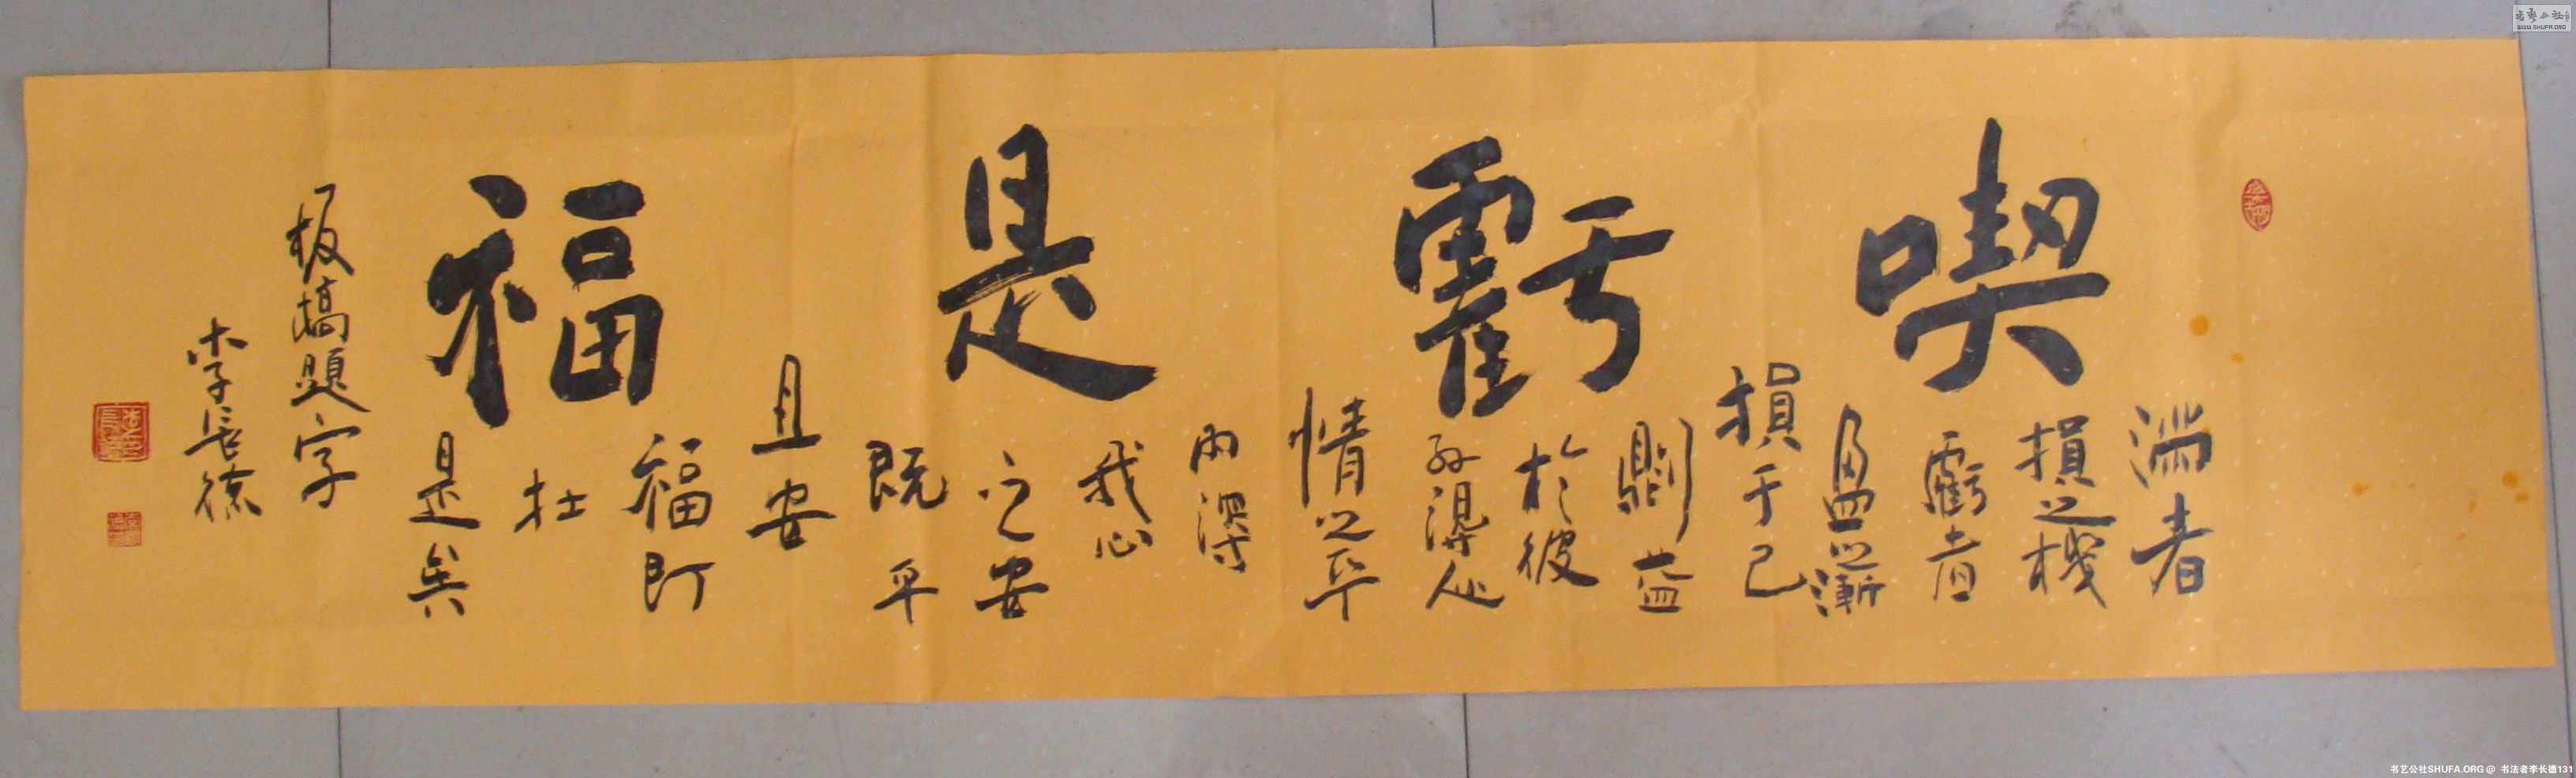 喫虧是福
滿者
損之機
虧者
盈之漸
損于己
則益
於彼
外得人
情之平
內得
我心
之安
既平
且安
福即
在
是矣
板橋題字
李長德
书艺公社SHUFA.ORG @ 书法者李长德131
WWW.SHUFA.ORG